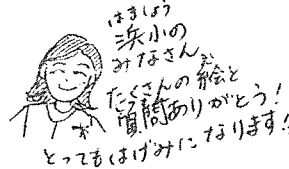 はましょう
浜小の
みなさん
たくさんの絵と
え
質問ありがとう！
とってもはげみになります！！